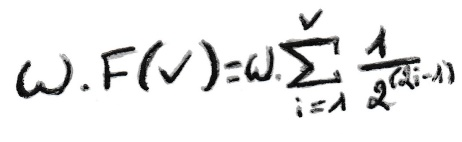 ω.F(v)=ω.∑_{i=1}^{v} 1/2^{(2i-1)}